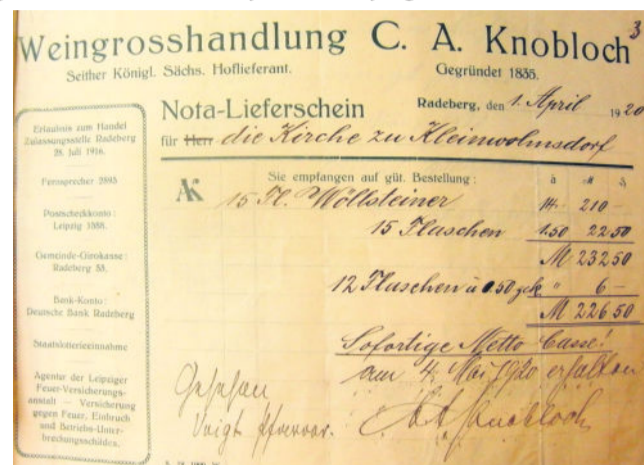 3
Weingrosshandlung C. A. Knobloch
Seither Königl. Sächs. Hoflieferant.
Gegründet 1835.
Nota-Lieferschein
Radeberg, den 1. April 1920
für Herr die Kirche zu Kleinwolmsdorf
Erlaubnis zum Handel
Zulassungsstelle Radeberg
28. Juli 1916.
Fernsprecher 2893
Postscheckkonto:
Leipzig
Gemeinde-Girokasse:
Radeberg 55.
Bank-Konto:
Deutsche Bank Radeberg
Staatslotterieeinnahme
Agentur der Leipziger
Feuer-Versicherungs-
anstalt — Versicherung
gegen Feuer, Einbruch
und Betriebs-Unter-
brechungsschäden.
AK
Sie empfangen auf güt. Bestellung: à M ₰
15 Fl. Wöllsteiner 14.- 210 -
15 Flaschen 1.50 22 50
M 232 50
12 Flaschen à 0.50 zck " 6 -
M 226 50
Sofortige Netto Casse!
am 4. Mai 1920 erhalten
C A Knobloch
Gesehen
Voigt Pfarrer.